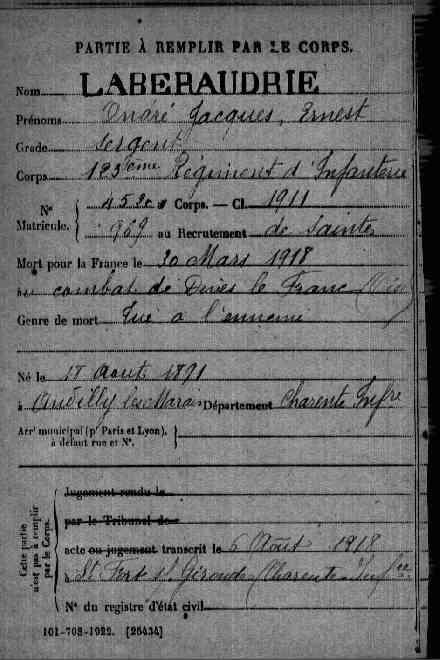 PARTIE À REMPLIR PAR LE CORPS.
Nom LABERAUDRIE
Prénoms André Jacques, Ernest
Grade Sergent
Corps 123ème Régiment d'Infanterie
N° au Corps. — Cl. 1911
Matricule. 969 au Recrutement de Saintes
Mort pour la France le 30 Mars 1918
au combat de Dives le Franc
Genre de mort Tué à l'ennemi
Né le 18 Août 1891
à Andilly les Marais Département Charente Infre
Arrt municipal (pr Paris et Lyon),
à défaut rue et N°.
Cette partie
n'est pas à remplir
par le Corps.
Jugement rendu le
par le Tribunal de
acte ou jugement transcrit le 6 Août 1918
à St Fort s/ Gironde (Charente-Infre
N° du registre d'état civil
101-708-1922. [26434]